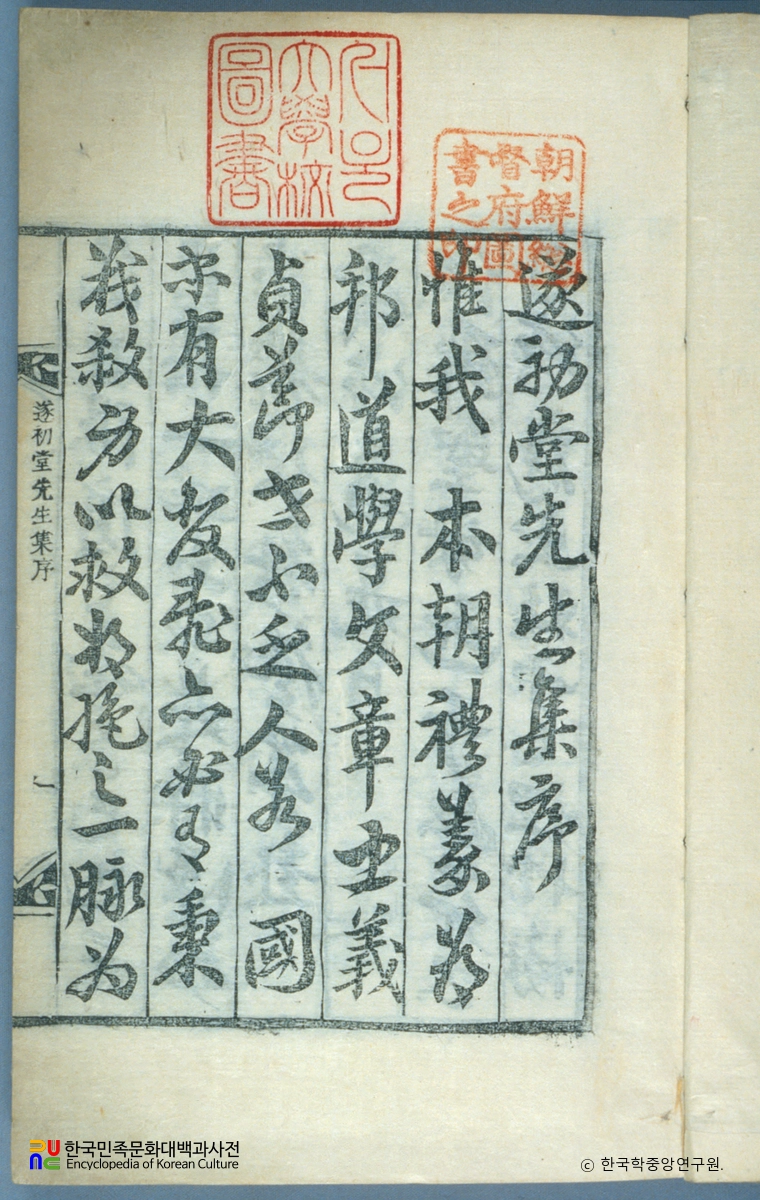 서울
大學校
圖書
朝鮮總
督府圖
書之印
遂初堂先生集序
惟我 本朝禮義爲
邦道學文章忠義
貞節世不乏人若 國
家有大變亂亦必有秉
義殺身以救將絶之一脉为
遂初堂先生集序 一
한국민족문화대백과사전
Encyclopedia of Korean Culture
© 한국학중앙연구원.